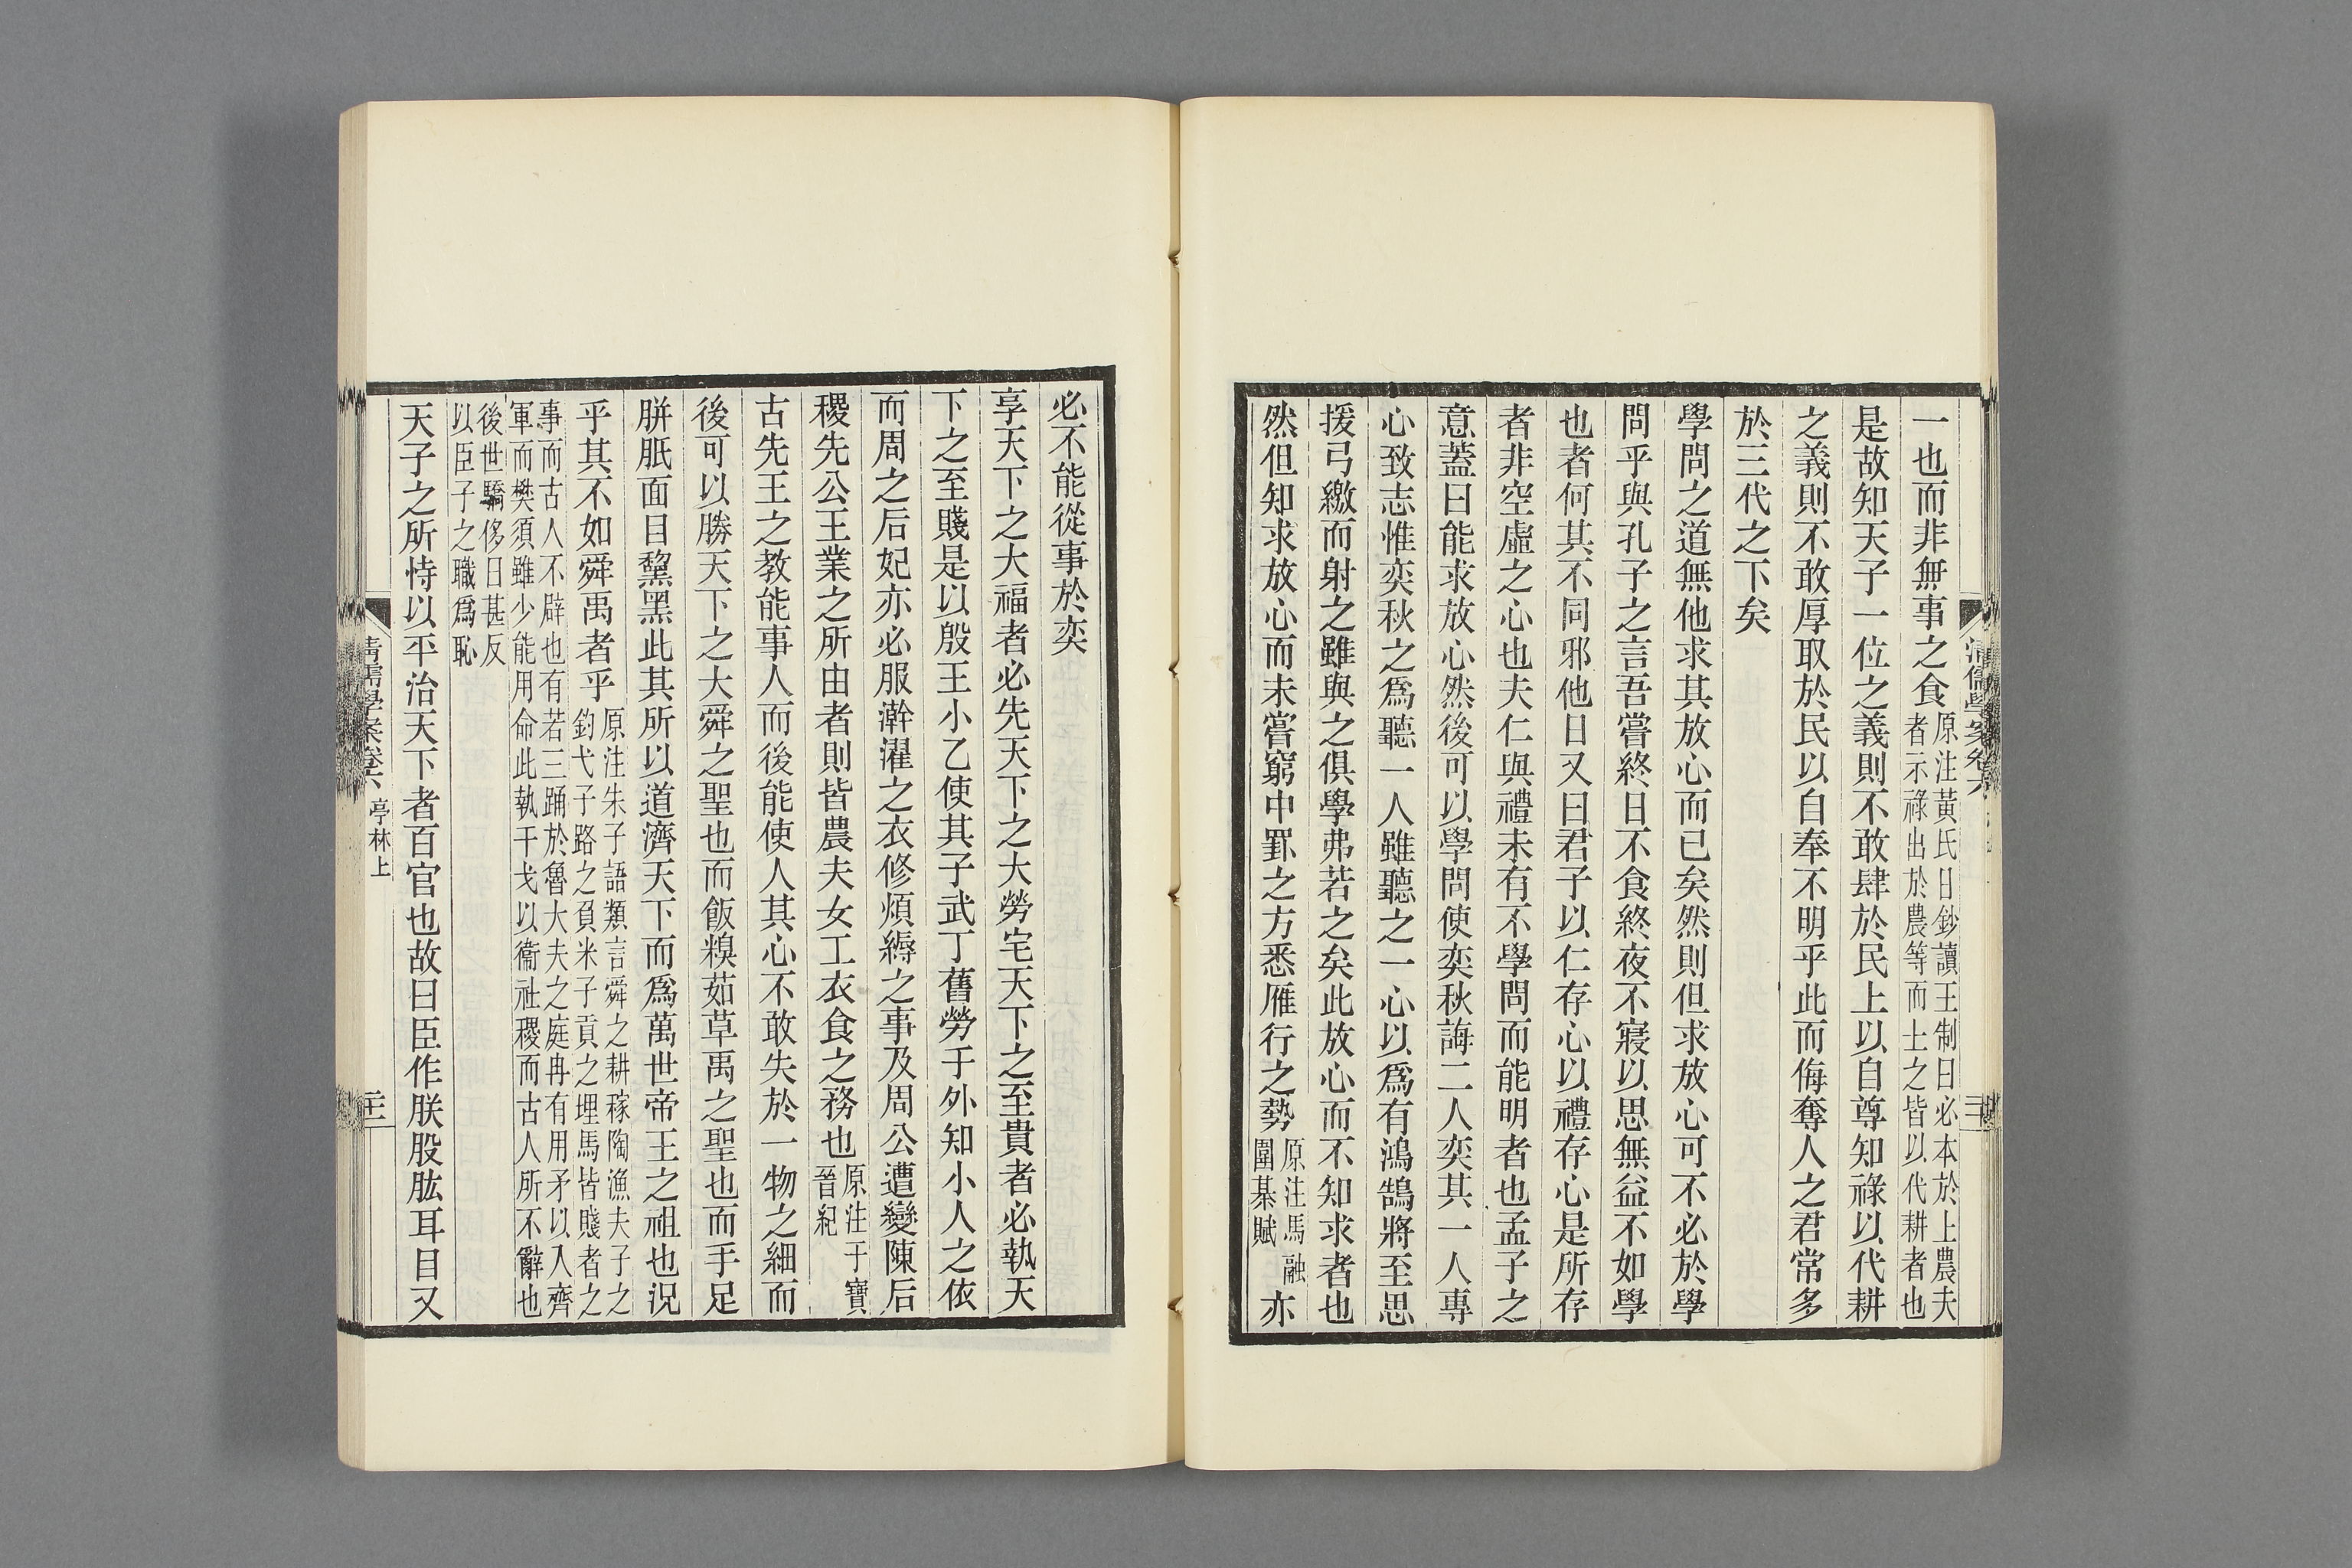 一也而非無事之食原注黃氏日鈔讀王制曰必本於上農夫者示祿出於農等而士之皆以代耕者也
是故知天子一位之義則不敢肆於民上以自尊知祿以代耕
之義則不敢厚取於民以自奉不明乎此而侮奪人之君常多
於三代之下矣
學問之道無他求其放心而已矣然則但求放心可不必於學
問乎與孔子之言吾嘗終日不食終夜不寢以思無益不如學
也者何其不同邪他日又曰君子以仁存心以禮存心是所存
者非空虛之心也夫仁與禮未有不學問而能明者也孟子之
意蓋曰能求放心然後可以學問使奕秋誨二人奕其一人專
心致志惟奕秋之爲聽一人雖聽之一心以爲有鴻鵠將至思
援弓繳而射之雖與之俱學弗若之矣此放心而不知求者也
然但知求放心而未嘗窮中罫之方悉雁行之勢原注馬融圍棊賦亦
必不能從事於奕
享天下之大福者必先天下之大勞宅天下之至貴者必執天
下之至賤是以殷王小乙使其子武丁舊勞于外知小人之依
而周之后妃亦必服澣濯之衣修煩縟之事及周公遭變陳后
稷先公王業之所由者則皆農夫女工衣食之務也原注干寶晉紀
古先王之教能事人而後能使人其心不敢失於一物之細而
後可以勝天下之大舜之聖也而飯糗茹草禹之聖也而手足
胼胝面目黧黑此其所以道濟天下而爲萬世帝王之祖也況
乎其不如舜禹者乎原注朱子語類言舜之耕稼陶漁夫子之釣弋子路之負米子貢之埋馬皆賤者之
事而古人不辟也有若三踊於魯大夫之庭冉有用矛以入齊軍而樊須雖少能用命此執干戈以衞社稷而古人所不辭也
後世驕侈日甚反以臣子之職爲恥
天子之所恃以平治天下者百官也故曰臣作朕股肱耳目又
清儒學案卷六 亭林上